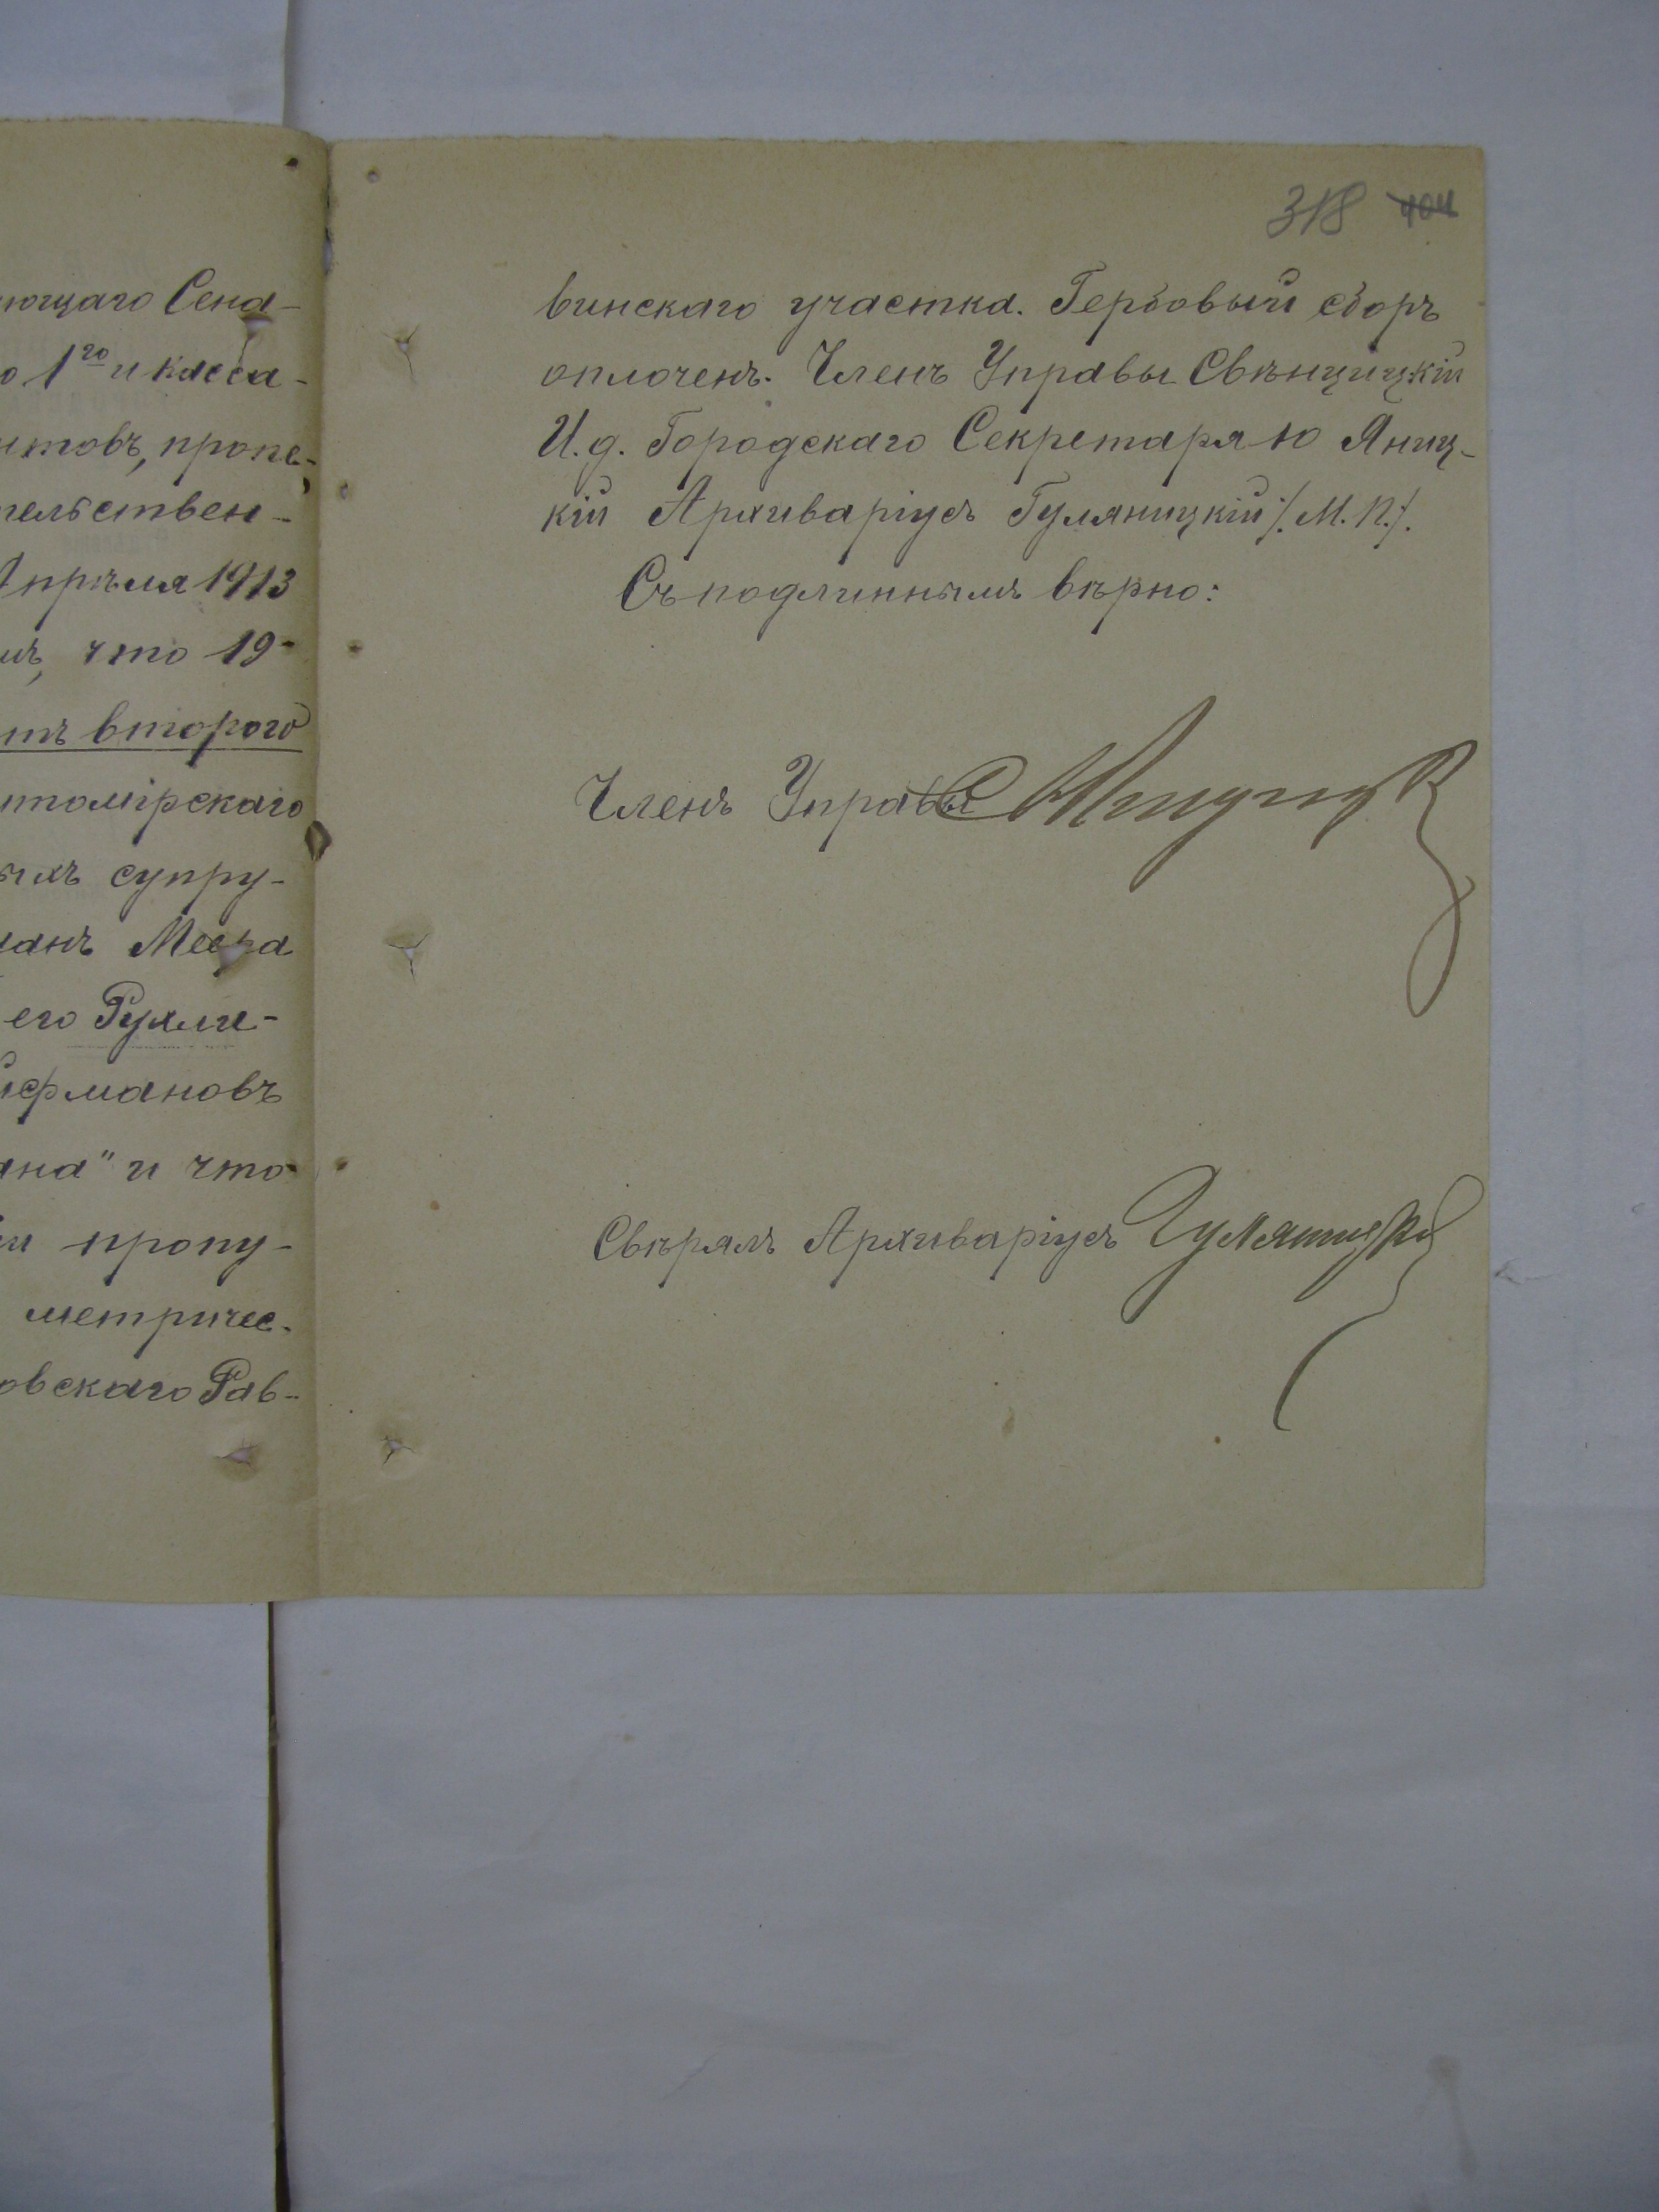 ющаго Сена-
о 1го и касса-
нтовъ, пропе-
тельствен-
Апрѣля 1913
мъ, что 19-
тъ второго
итомірскаго
ыхъ супру-
манъ Меера
его Рухли-
йфмановъ
ана" и что
и пропу-
метричес-
овскаго Рав-
318 404
винскаго участка. Гербовый сборъ
оплоченъ. Членъ Управы Свѣнцицкій
И. д. Городскаго Секретаря Ю Яниц-
кій Архиваріусъ Гуляницкій /. М. П./.
Съ подлиннымъ вѣрно:
Членъ Управы
Свѣрялъ Архиваріусъ Гуляницкій